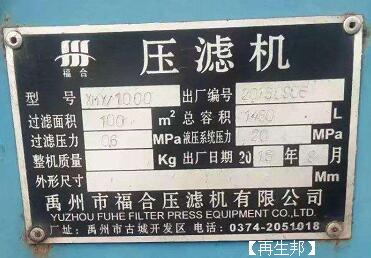 福合
压滤机
型号 XMY/1000 出厂编号
过滤面积 100 m² 总容积 1460 L
过滤压力 0.6 MPa 液压系统压力 20 MPa
整机质量 Kg 出厂日期 2015年 月
外形尺寸 Mm
禹州市福合压滤机有限公司
YUZHOU FUHE FILTER PRESS EQUIPMENT CO.,LTD.
厂址：禹州市古城开发区 电话：0374-2051018
【再生邦】